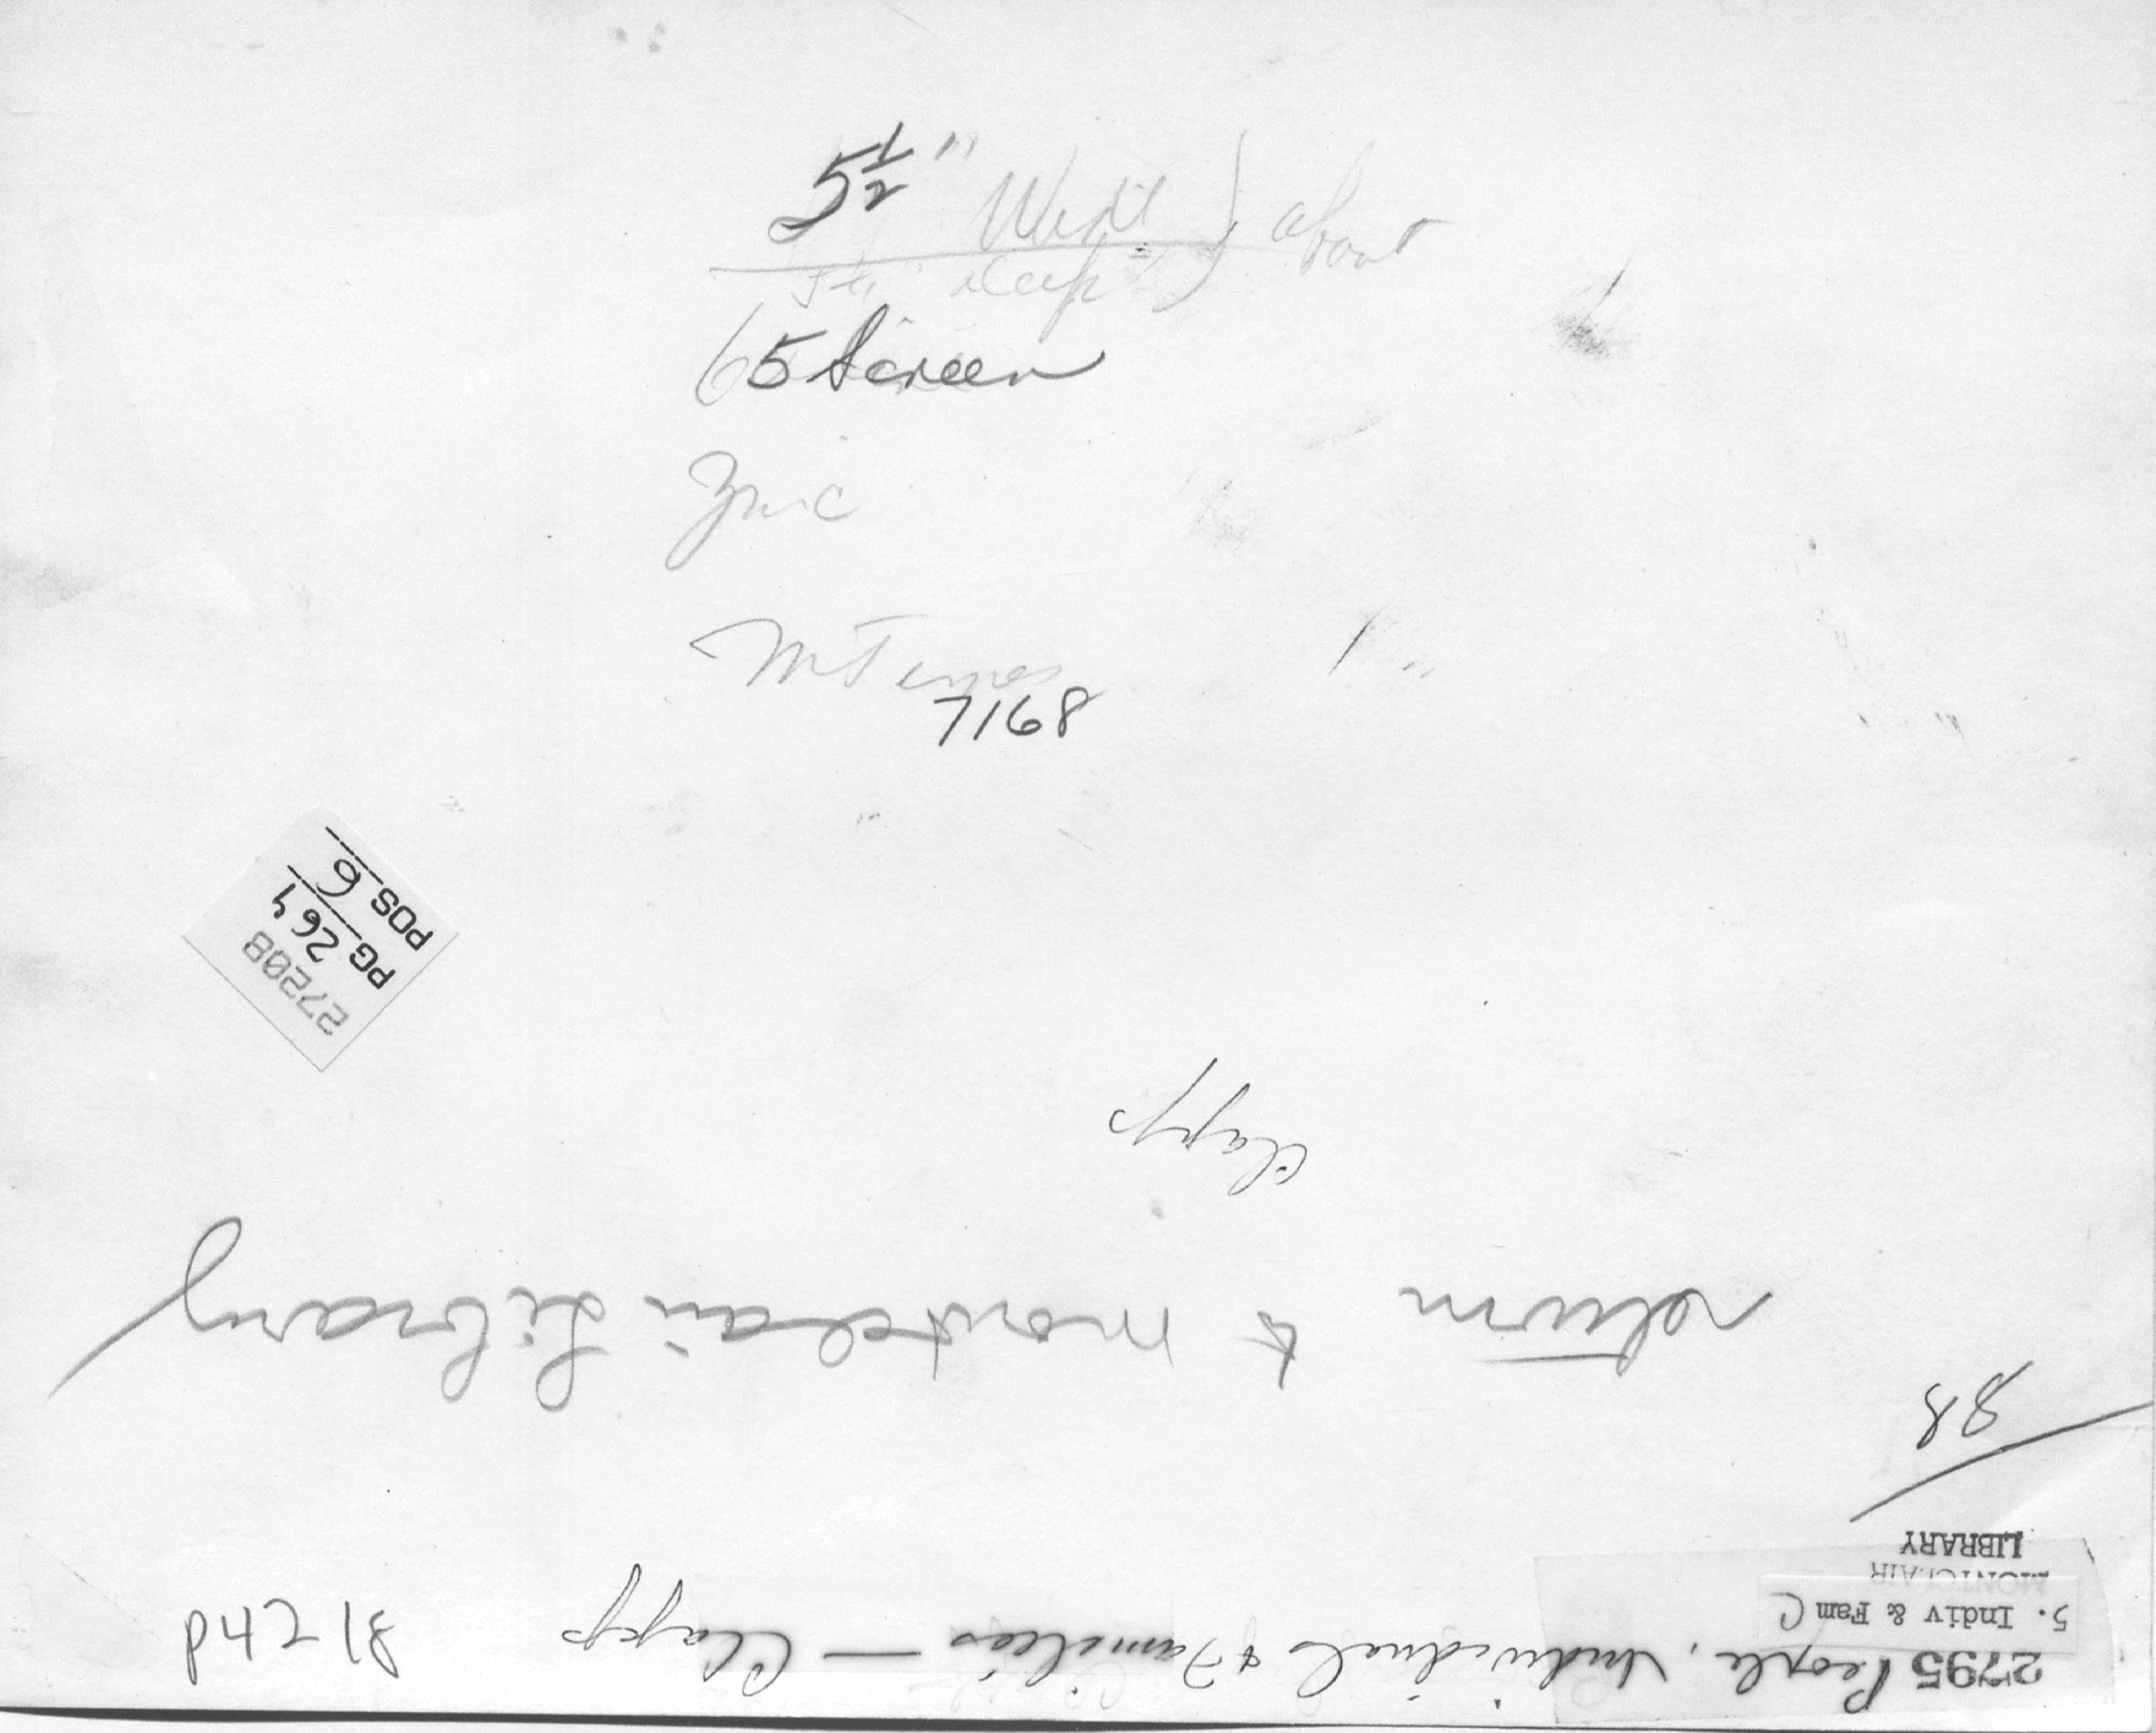 5½" Width } about
deep
65 Screen
Zinc
Mt Times
7168
27208
PG 264
POS 6
Clapp
return to Montclair Library
88
MONTCLAIR
LIBRARY
5. Indiv & Fam C
2795 People, Individual & Families — Clapp